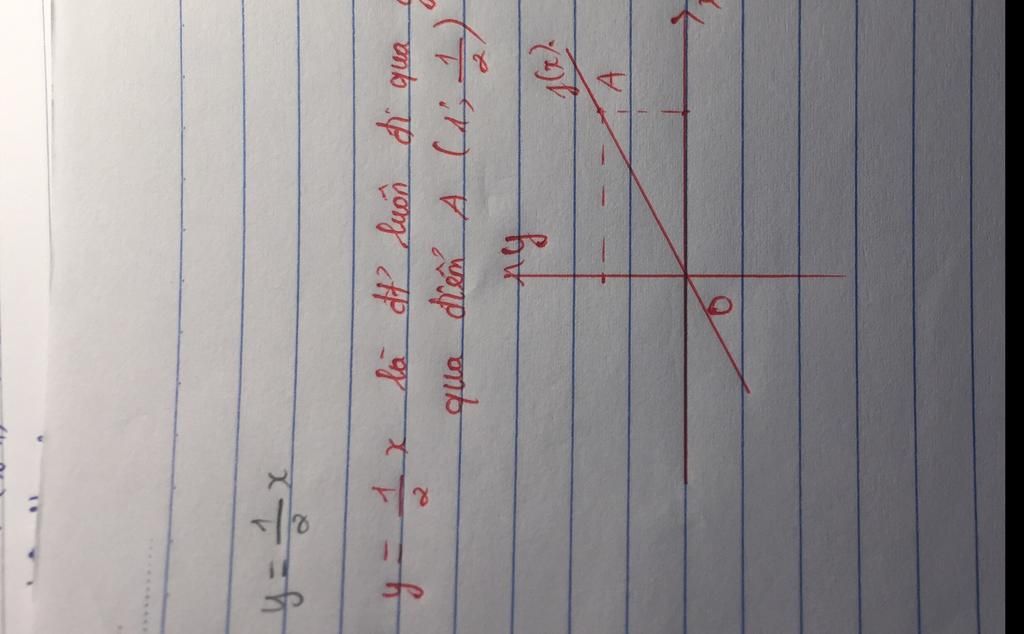 y = 1/2 x
y = 1/2 x là đt' luôn đi qua
qua điểm A (1; 1/2)
y
f(x).
A
O